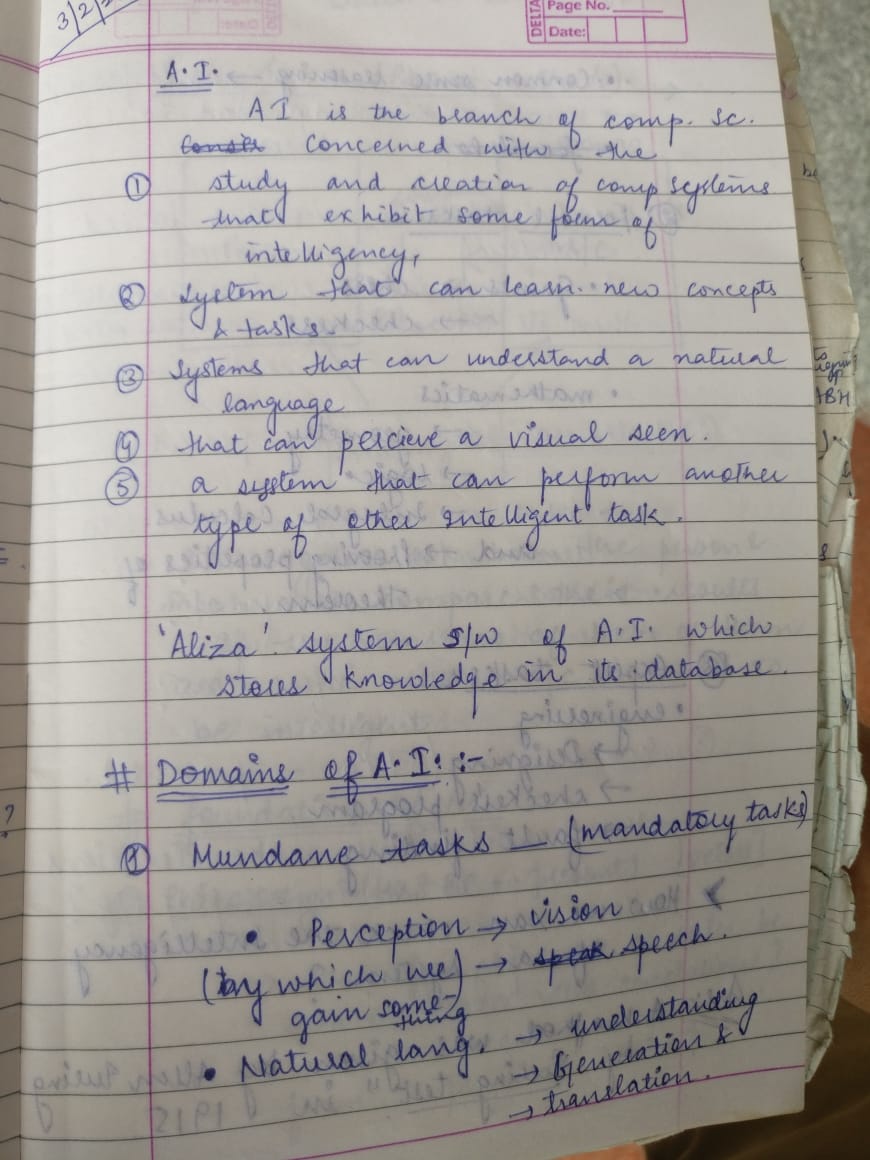 3/2/
DELTA
Page No.
Date:
A.I.
AI is the branch of comp. sc.
concerned with the
① study and creation of comp systems
that exhibit some form of
intelligency,
② system that can learn new concepts
& tasks.
③ systems that can understand a natural
language
④ that can percieve a visual seen.
⑤ a system that can perform another
type of other intelligent task.
'Aliza' system s/w of A.I. which
stores knowledge in its database.
# Domains of A.I. :-
① Mundane tasks — (mandatory tasks)
• Perception → vision
(by which we) → speak speech.
gain some-
thing
• Natural lang. → understanding
→ Generation &
→ translation.